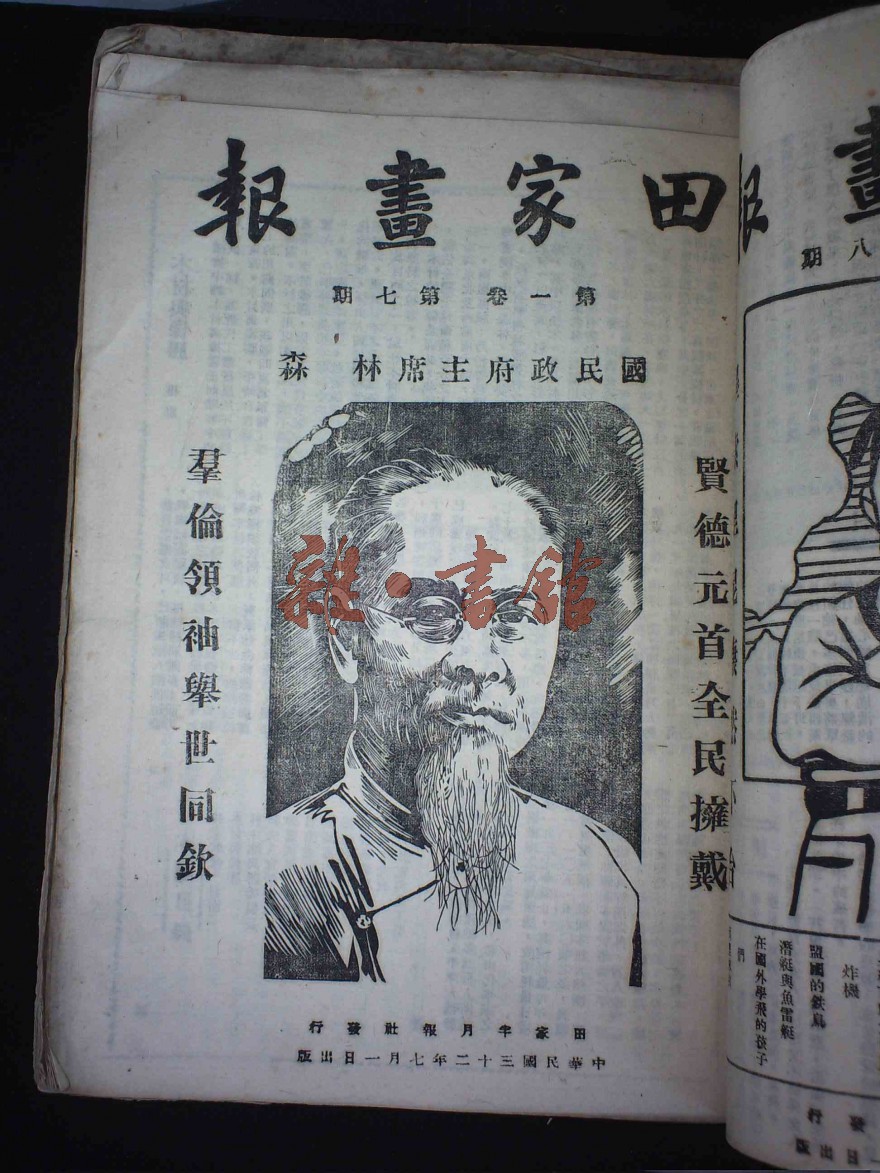 田家畫報
第一卷 第七期
國民政府主席林 森
賢德元首全民擁戴
羣倫領袖舉世同欽
雜·書館
田家半月報社發行
中華民國三十二年七月一日出版
報畫
八期
炸機
盟國的鉄鳥
潛艇與魚雷艇
在國外學飛的孩子
們
發行
日出版